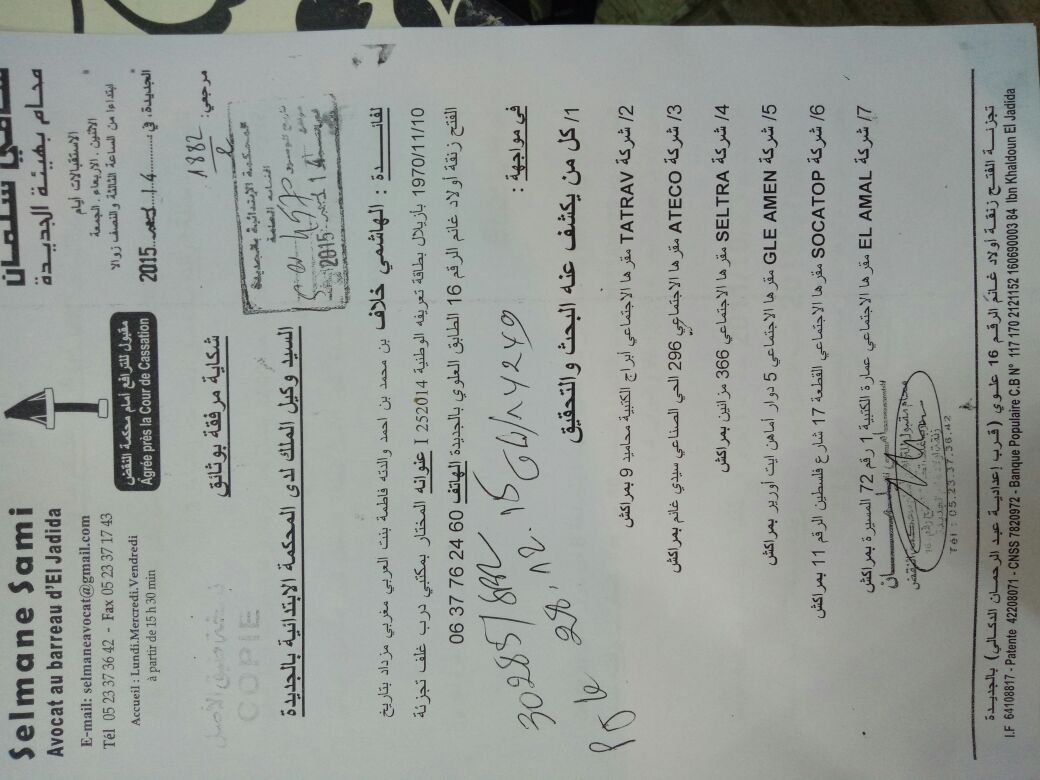 Selmane Sami
Avocat au barreau d'El Jadida
E-mail: selmaneavocat@gmail.com
Tél 05 23 37 36 42 - Fax 05 23 37 17 43
Accueil : Lundi.Mercredi.Vendredi
à partir de 15 h 30 min
مقبول للترافع أمام محكمة النقض
Agrée près la Cour de Cassation
سامي سلمان
محام بهيئة الجديدة
الاستقبالات أيام
الاثنين. الاربعاء. الجمعة
ابتداءا من الساعة الثالثة والنصف زوالا
الجديدة، في : 14 2015
مرجعي: 1882
COPIE
شكاية مرفقة بوثائق
السيد وكيل الملك لدى المحكمة الابتدائية بالجديدة
لفائـــدة : الهاشمي خلاف بن محمد بن احمد والدته فاطمة بنت العربي مغربي مزداد بتاريخ
1970/11/10 بازيلال بطاقة تعريفه الوطنية I 252014 عنوانه المختار بمكتبي درب غلف تجزئة
الفتح زنقة اولاد غانم الرقم 16 الطابق العلوي بالجديدة الهاتف 60 24 76 37 06
30285/
28.12.15
في مواجهة :
1/ كل من يكشف عنه البحث والتحقيق
2/ شركة TATRAV مقرها الاجتماعي ابراج الكتبية محاميد 9 بمراكش
3/ شركة ATECO مقرها الاجتماعي 296 الحي الصناعي سيدي غانم بمراكش
4/ شركة SELTRA مقرها الاجتماعي 366 مزانين بمراكش
5/ شركة GLE AMEN مقرها الاجتماعي 5 دوار أماهن ايت أورير بمراكش
6/ شركة SOCATOP مقرها الاجتماعي القطعة 17 شارع فلسطين الرقم 11 بمراكش
7/ شركة EL AMAL مقرها الاجتماعي عمارة الكتبية 1 رقم 72 المسيرة بمراكش
Tél : 05.23.37.36.42
تجزئـــة الفتـح زنقـة أولاد غانم الرقـم 16 علـوي (قـرب إعداديـة عبد الرحمـان الدكالـي) بالجديـدة
I.F 64108817 - Patente 42208071 - CNSS 7820972 - Banque Populaire C.B N° 117 170 2121152 160690003 84 Ibn Khaldoun El Jadida